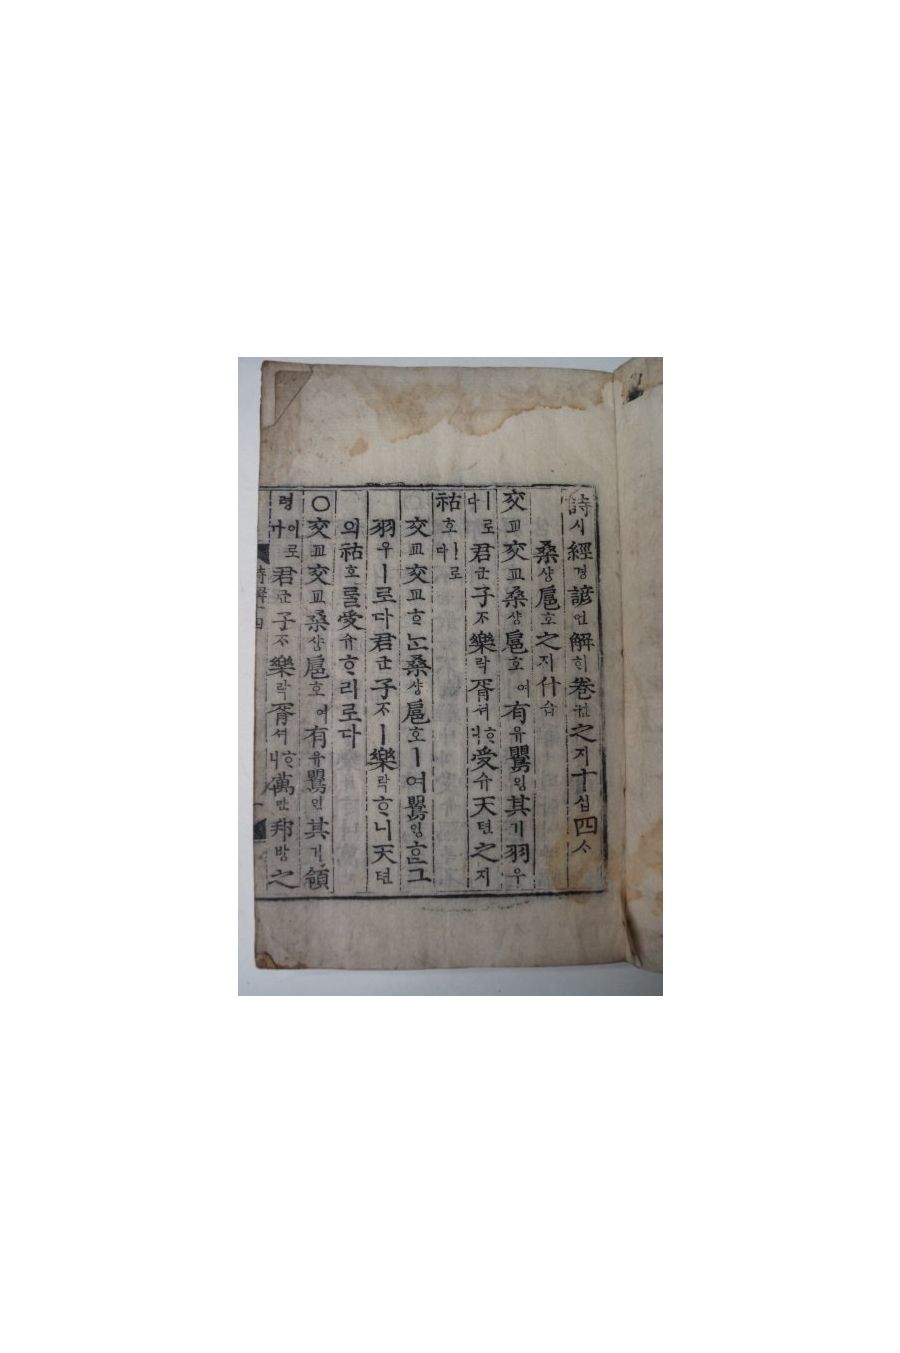 詩시經경諺언解ᄒᆡ卷권之지十십四ᄉᆞ
桑상扈호之지什습
交교交교桑상扈호여有유鸎ᄋᆡᆼ其기羽우
ㅣ로다君군子ᄌᆞ樂락胥셔ᄒᆞ니受슈天텬之지
祜호ㅣ로다
交교交교ᄒᆞᄂᆞᆫ桑상扈호ㅣ여鸎ᄋᆡᆼᄒᆞᆫ그
羽우ㅣ로다君군子ᄌᆞㅣ樂락ᄒᆞ니天텬
의祜호ᄅᆞᆯ受슈ᄒᆞ리로다
○交교交교桑상扈호여有유鸎ᄋᆡᆼ其기領
령이로다君군子ᄌᆞ樂락胥셔ᄒᆞ니萬만邦방之